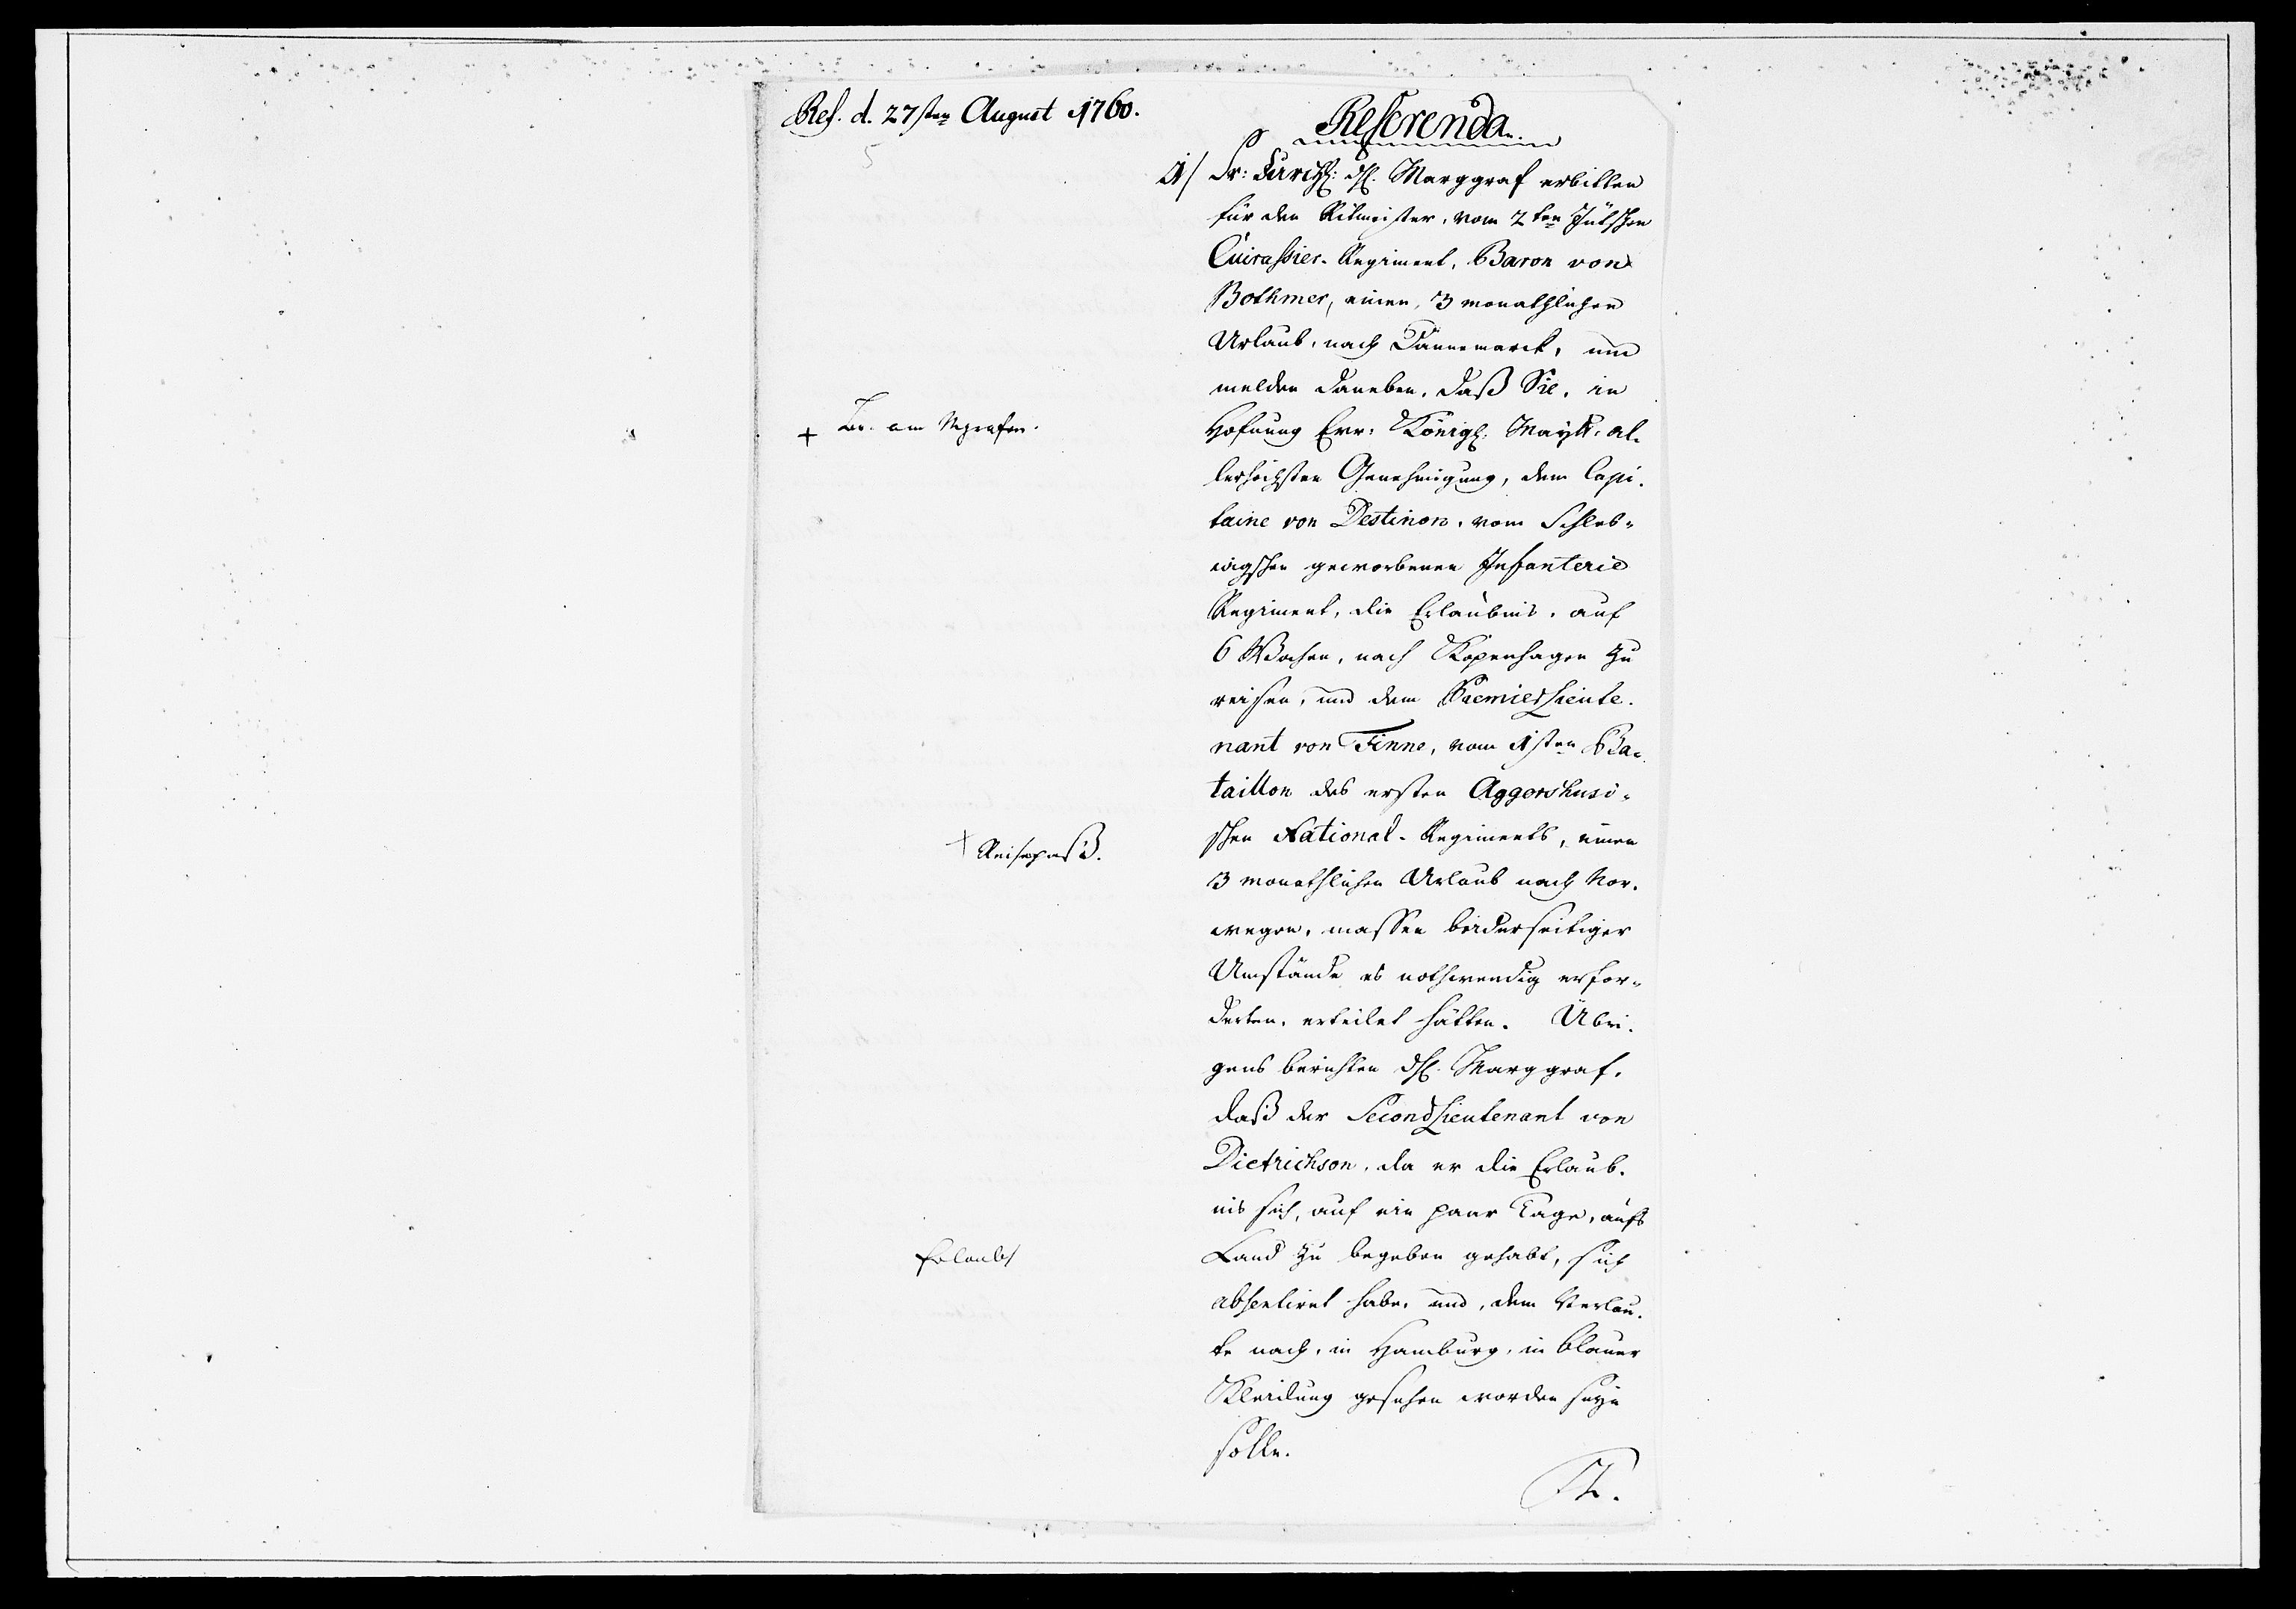 Ref. d. 27sten August 1760.
Referenda.
1/ Sr: Durchl: dH. Marggraf erbitten
für den Ritmeister, vom 2ten Jütschen
Cuirassier-Regiment, Baron von
Bothmer, einen, 3 monathlichen
Urlaub, nach Dännemarck, und
melden daneben, daß Sie, in
+ Br. am Mgrafen.
Hofnung Ewr: Königl: Maytt. al-
lerhöchsten Genehmigung, dem Capi-
taine von Destinon, vom Schles-
wigschen geworbenen Infanterie
Regiment, die Erlaubnis, auf
6 Wochen, nach Kopenhagen zu
reisen, und dem PremierLieute-
nant von Finne, vom 1sten Ba-
taillon des ersten Aggershusi-
schen National-Regiments, einen
+ Reisepaß.
3 monathlichen Urlaub nach Nor-
wegen, massen beiderseitiger
Umstände es nothwendig erfor-
derten, erteilet hätten. Übri-
gens berichten dH. Marggraf,
daß der SecondLieutenant von
Dietrichson, da er die Erlaub-
nis sich, auf ein paar Tage, aufs
Erlaubt
Land zu begeben gehabt, sich
absentiret habe, und, dem Verlau-
te nach, in Hamburg, in blauer
Kleidung gesehen worden seyn
solle.